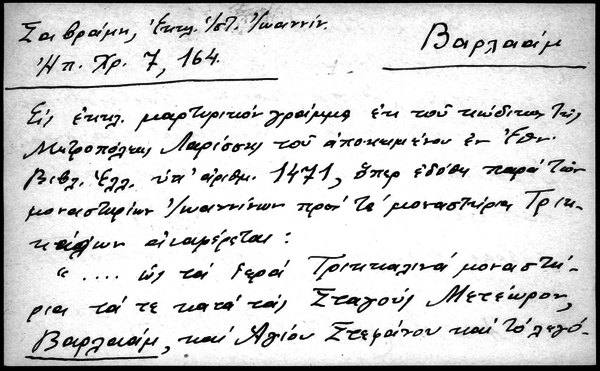 Σαβράμη, Ἐκκλ. Ἱστ. Ἰωαννίν.
Ἠπ. Χρ. 7, 164.
Βαρλαάμ
Εἰς ἐκκλ. μαρτυρικόν γράμμα ἐκ τοῦ κώδικος τῆς
Μητροπόλεως Λαρίσσης τοῦ ἀποκειμένου ἐν Ἐθν.
Βιβλ. Ἑλλ. ὑπ' ἀριθμ. 1471, ὅπερ ἐδόθη παρά τῶν
μοναστηρίων Ἰωαννίνων πρός τά μοναστήρια Τρικ-
κάλων ἀναφέρεται :
" .... ὡς τά ἱερά Τρικκαλινά μοναστή-
ρια τά τε κατά τούς Σταγούς Μετέωρον,
Βαρλαάμ, καί Ἁγίου Στεφάνου καί τό λεγό-